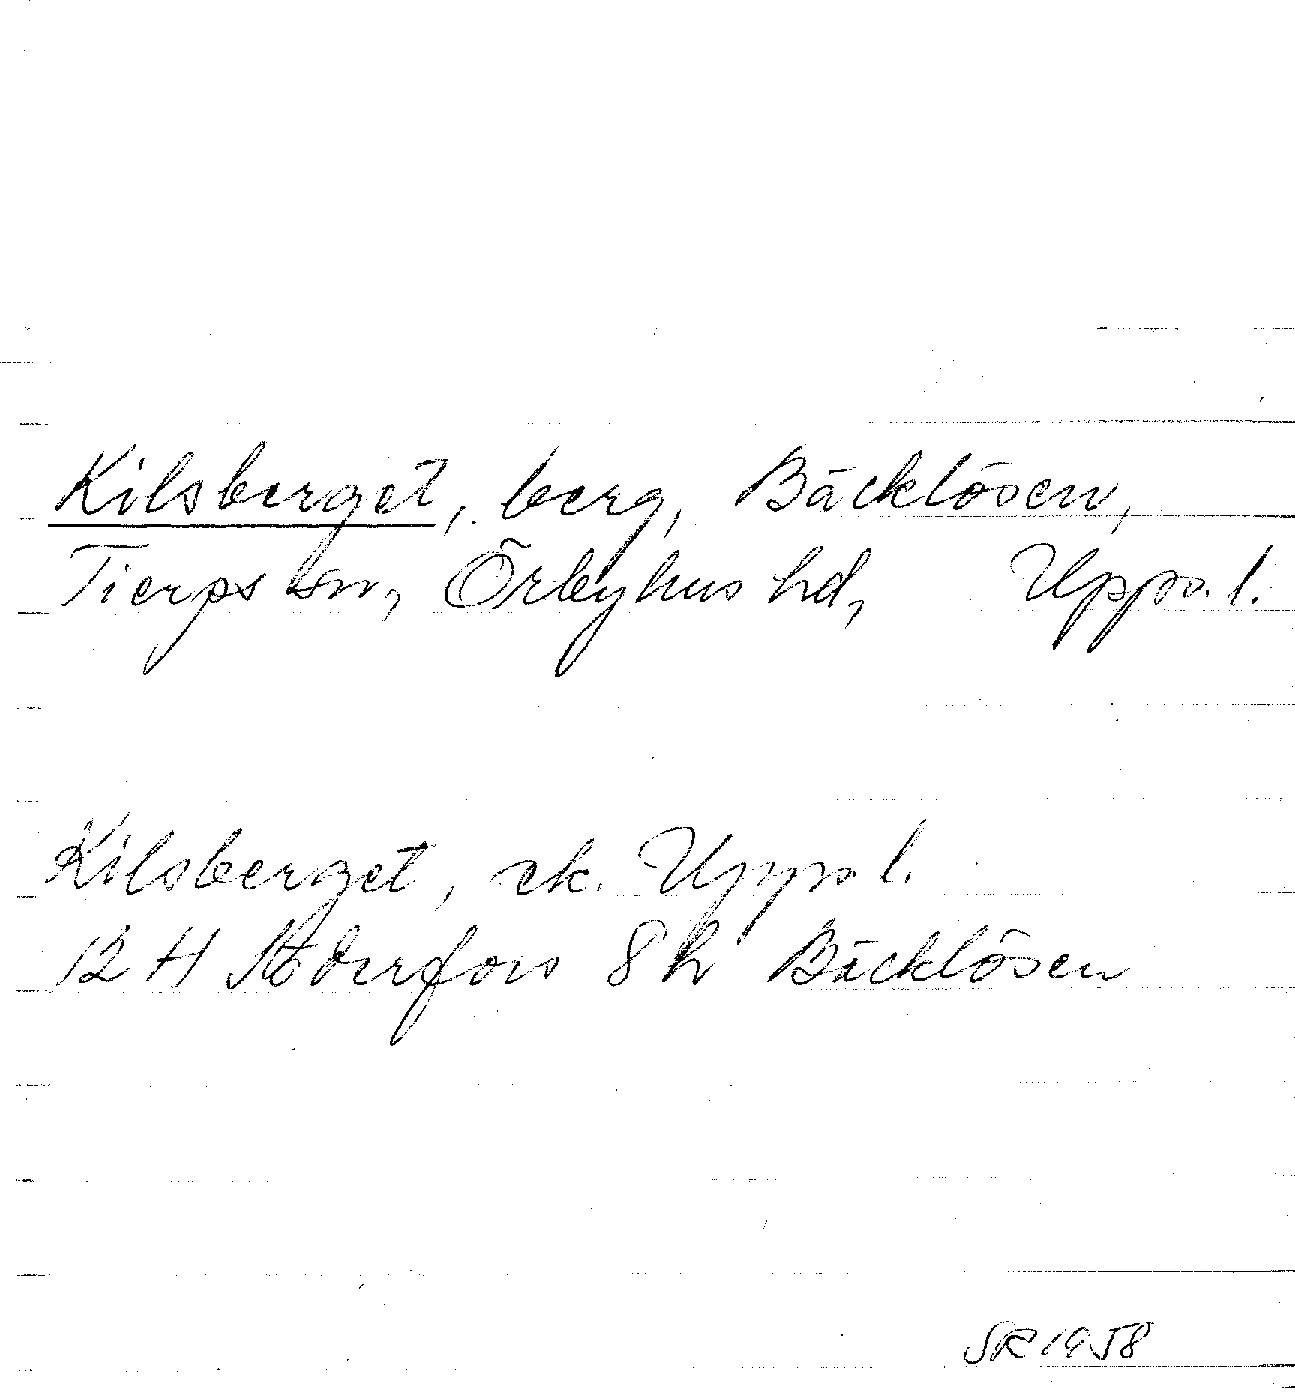 Kilsberget, berg, Bäcklösen,
Tierps sn, Örbyhus hd, Upps. l.
Kilsberget, ek. Upps l.
12 H Söderfors 8 h Bäcklösen
SR 1958